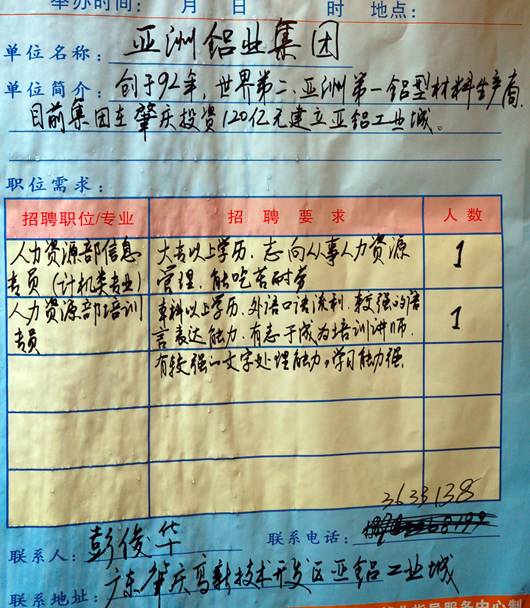 举办时间: 月 日 时 地点:
单位名称: 亚洲铝业集团
单位简介: 创于92年, 世界第二、亚洲第一铝型材料生产商,
目前集团在肇庆投资120亿元建立亚铝工业城。
职位需求:
招聘职位/专业 招聘要求 人数
人力资源部信息 大专以上学历, 志向从事人力资源 1
专员(计机类专业) 管理, 能吃苦耐劳
人力资源部培训 本科以上学历, 外语口语流利, 较强的语 1
专员 言表达能力, 有志于成为培训讲师,
有较强的文字处理能力, 学习能力强.
3633138
联系人: 彭俊华 联系电话:
联系地址: 广东肇庆高新技术开发区亚铝工业城
服务中心制